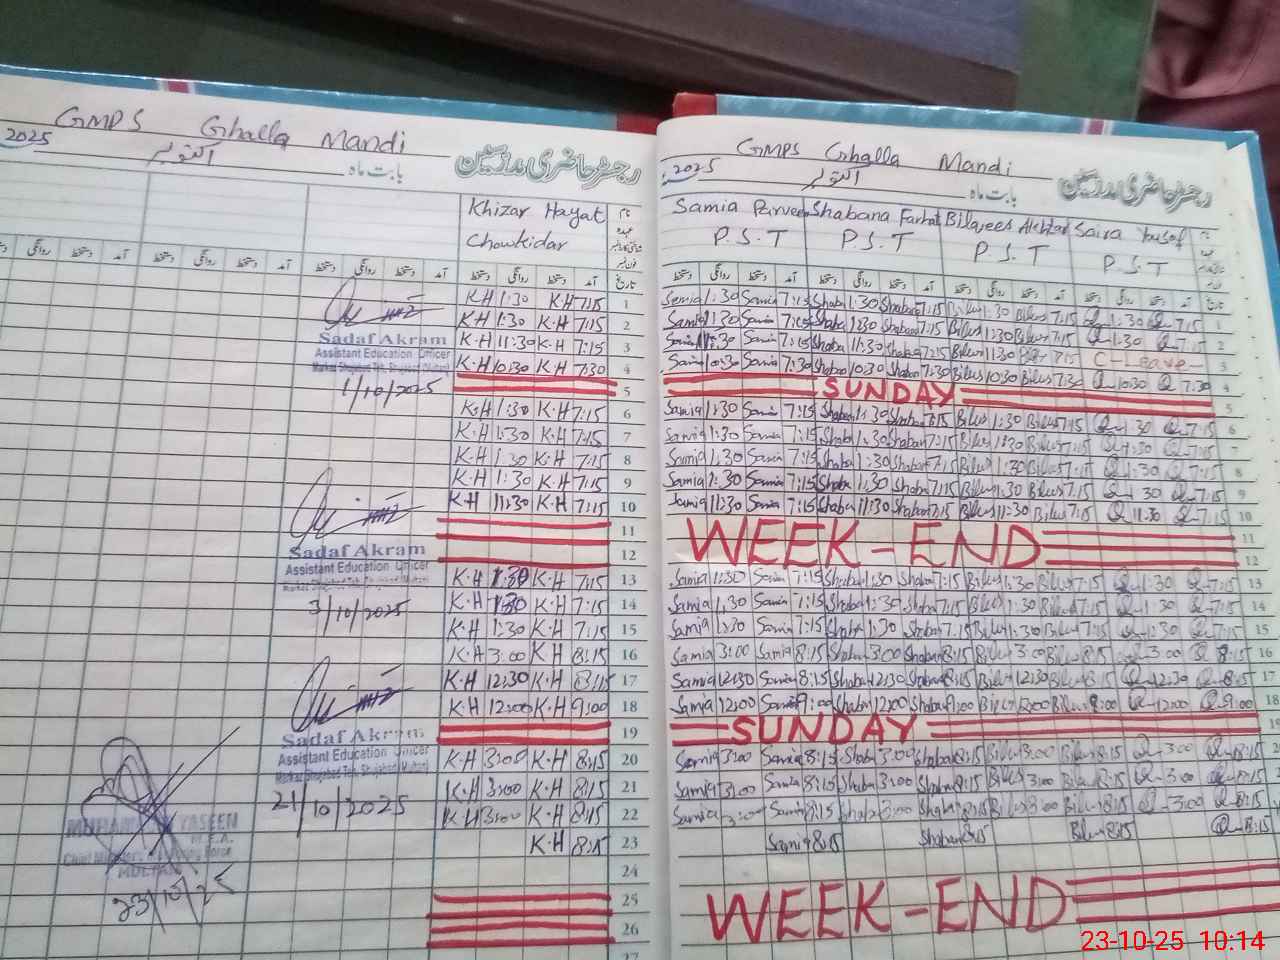 GMPS Ghalla Mandi
2025 اکتوبر بابت ماہ رجسٹر حاضری مدرسین
Khizar Hayat
Chowkidar
دستخط روانگی دستخط آمد تاریخ
K·H 1:30 K·H 7:15 1
K·H 1:30 K·H 7:15 2
K·H 11:30 K·H 7:15 3
K·H 10:30 K·H 7:30 4
5
K·H 1:30 K·H 7:15 6
K·H 1:30 K·H 7:15 7
K·H 1:30 K·H 7:15 8
K·H 1:30 K·H 7:15 9
K·H 11:30 K·H 7:15 10
11
12
K·H 1:30 K·H 7:15 13
K·H 1:30 K·H 7:15 14
K·H 1:30 K·H 7:15 15
K·H 3:00 K·H 8:15 16
K·H 12:30 K·H 8:15 17
K·H 12:00 K·H 9:00 18
19
K·H 3:00 K·H 8:15 20
K·H 3:00 K·H 8:15 21
K·H 3:00 K·H 8:15 22
K·H 8:15 23
24
25
26
27
Sadaf Akram
Assistant Education Officer
Markaz Shujabad Teh. Shujabad (Multan)
1/10/2025
Sadaf Akram
Assistant Education Officer
3/10/2025
Sadaf Akram
Assistant Education Officer
Markaz Shujabad Teh. Shujabad (Multan)
21/10/2025
YASEEN
M.E.A.
MULTAN
23/10/25
GMPS Ghalla Mandi
2025 اکتوبر بابت ماہ رجسٹر حاضری مدرسین
Samia Parveen Shabana Farhat Bilqees Akhtar Saira Yousaf
P.S.T P.S.T P.S.T P.S.T
دستخط روانگی دستخط آمد دستخط روانگی دستخط آمد دستخط روانگی دستخط آمد دستخط روانگی دستخط آمد تاریخ
Samia 1:30 Samia 7:15 Shaba 1:30 Shaban 7:15 Bilus 1:30 Bilus 7:15 1:30 7:15 1
Samia 1:30 Samia 7:15 Shaba 1:30 Shaban 7:15 Bilus 1:30 Bilus 7:15 1:30 7:15 2
Samia 11:30 Samia 7:15 Shaba 11:30 Shaba 7:15 Bilus 11:30 Bilus 7:15 C-Leave 3
Samia 10:30 Samia 7:30 Shaba 10:30 Shaba 7:30 Bilus 10:30 Bilus 7:30 10:30 7:30 4
SUNDAY 5
Samia 1:30 Samia 7:15 Shaba 1:30 Shaban 7:15 Bilus 1:30 Bilus 7:15 1:30 7:15 6
Samia 1:30 Samia 7:15 Shaba 1:30 Shaban 7:15 Bilus 1:30 Bilus 7:15 1:30 7:15 7
Samia 1:30 Samia 7:15 Shaba 1:30 Shaban 7:15 Bilus 1:30 Bilus 7:15 1:30 7:15 8
Samia 1:30 Samia 7:15 Shaba 1:30 Shaban 7:15 Bilus 1:30 Bilus 7:15 1:30 7:15 9
Samia 11:30 Samia 7:15 Shaba 11:30 Shaban 7:15 Bilus 11:30 Bilus 7:15 11:30 7:15 10
WEEK-END 11
12
Samia 1:30 Samia 7:15 Shaba 1:30 Shaba 7:15 Bilus 1:30 Bilus 7:15 1:30 7:15 13
Samia 1:30 Samia 7:15 Shaba 1:30 Shaba 7:15 Bilus 1:30 Bilus 7:15 1:30 7:15 14
Samia 1:30 Samia 7:15 Shaba 1:30 Shaba 7:15 Bilus 1:30 Bilus 7:15 1:30 7:15 15
Samia 3:00 Samia 8:15 Shaba 3:00 Shaban 8:15 Bilus 3:00 Bilus 8:15 3:00 8:15 16
Samia 12:30 Samia 8:15 Shaba 12:30 Shaban 8:15 Bilus 12:30 Bilus 8:15 12:30 8:15 17
Samia 12:00 Samia 9:00 Shaba 12:00 Shaban 9:00 Bilus 12:00 Bilus 9:00 12:00 9:00 18
SUNDAY 19
Samia 3:00 Samia 8:15 Shaba 3:00 Shaban 8:15 Bilus 3:00 Bilus 8:15 3:00 8:15
Samia 3:00 Samia 8:15 Shaba 3:00 Shaban 8:15 Bilus 3:00 Bilus 8:15 3:00 8:15
Samia 3:00 Samia 8:15 Shaba 3:00 Shaban 8:15 Bilus 3:00 Bilus 8:15 3:00 8:15
Samia 8:15 Shaban 8:15 Bilus 8:15 8:15
WEEK-END
23-10-25 10:14